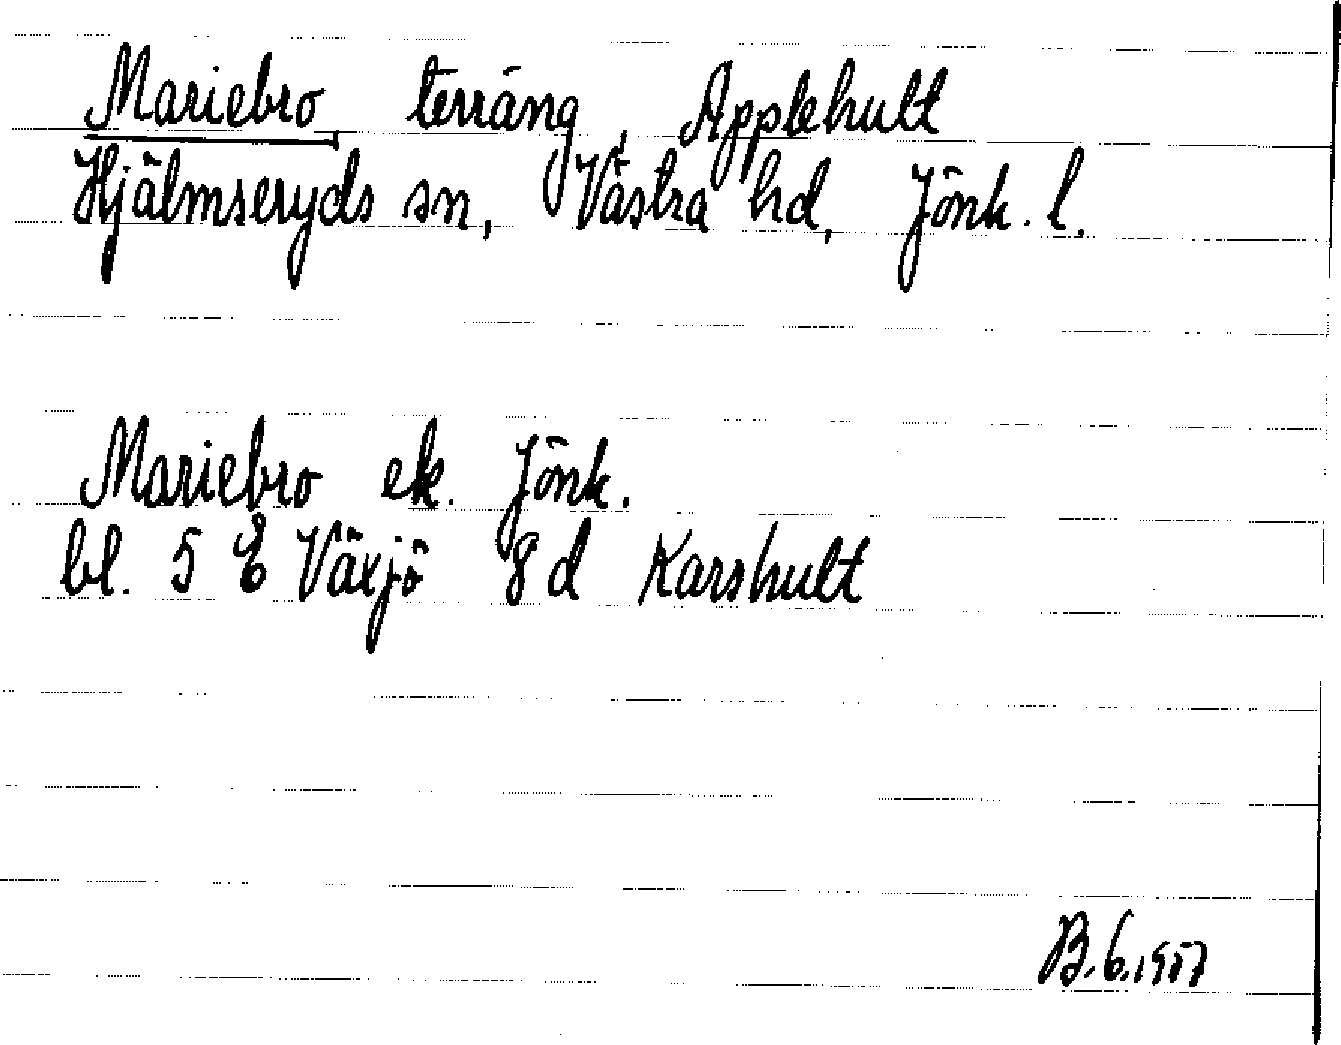 Mariebro, terräng, Applehult
Hjälmseryds sn, Västra hd, Jönk. l.
Mariebro ek. Jönk.
bl. 5 E Växjö 8d Karshult
B.6.1957